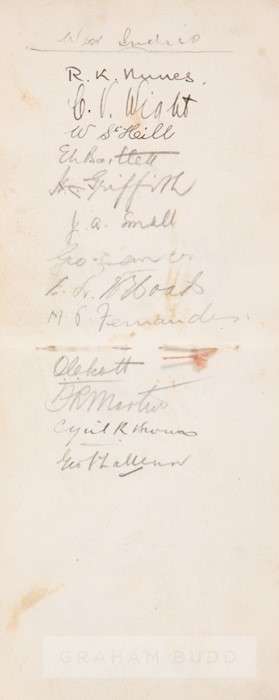 West Indies
R. K. Nunes.
C. V. Wight
W St Hill
E L Bartlett
H C Griffith
J. A. Small
Geo Francis
M P Fernandes.
O C Scott
F R Martin
Cyril R Browne
Geo Challenor
GRAHAM BUDD